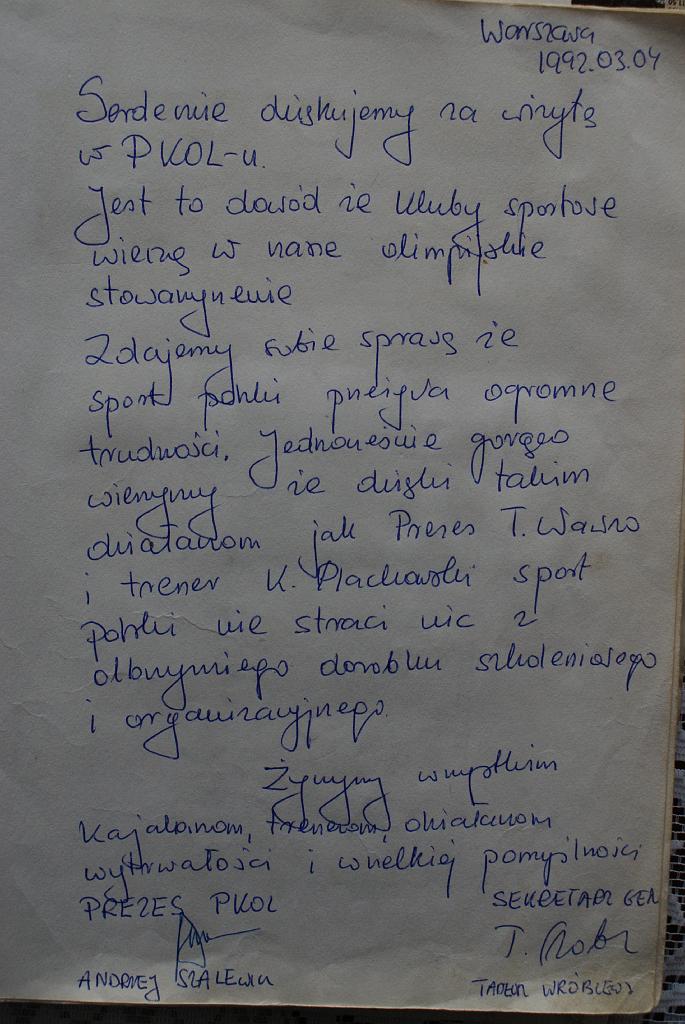 Warszawa
1992.03.04
Serdecznie dziękujemy za wizytę
w PKOL-u.
Jest to dowód że kluby sportowe
wierzą w nasze olimpijskie
stowarzyszenie
Zdajemy sobie sprawę że
sport polski przeżywa ogromne
trudności. Jednocześnie gorąco
wierzymy że dzięki takim
działaczom jak Prezes T. Wawro
i trener K. Plachowski sport
polski nie straci nic z
olbrzymiego dorobku szkoleniowego
i organizacyjnego.
Życzymy wszystkim
Kajakarzom, trenerom, działaczom
wytrwałości i wszelkiej pomyślności
PREZES PKOL
SEKRETARZ GEN
ANDRZEJ SZALEWICZ
TADEUSZ WRÓBLEWSKI